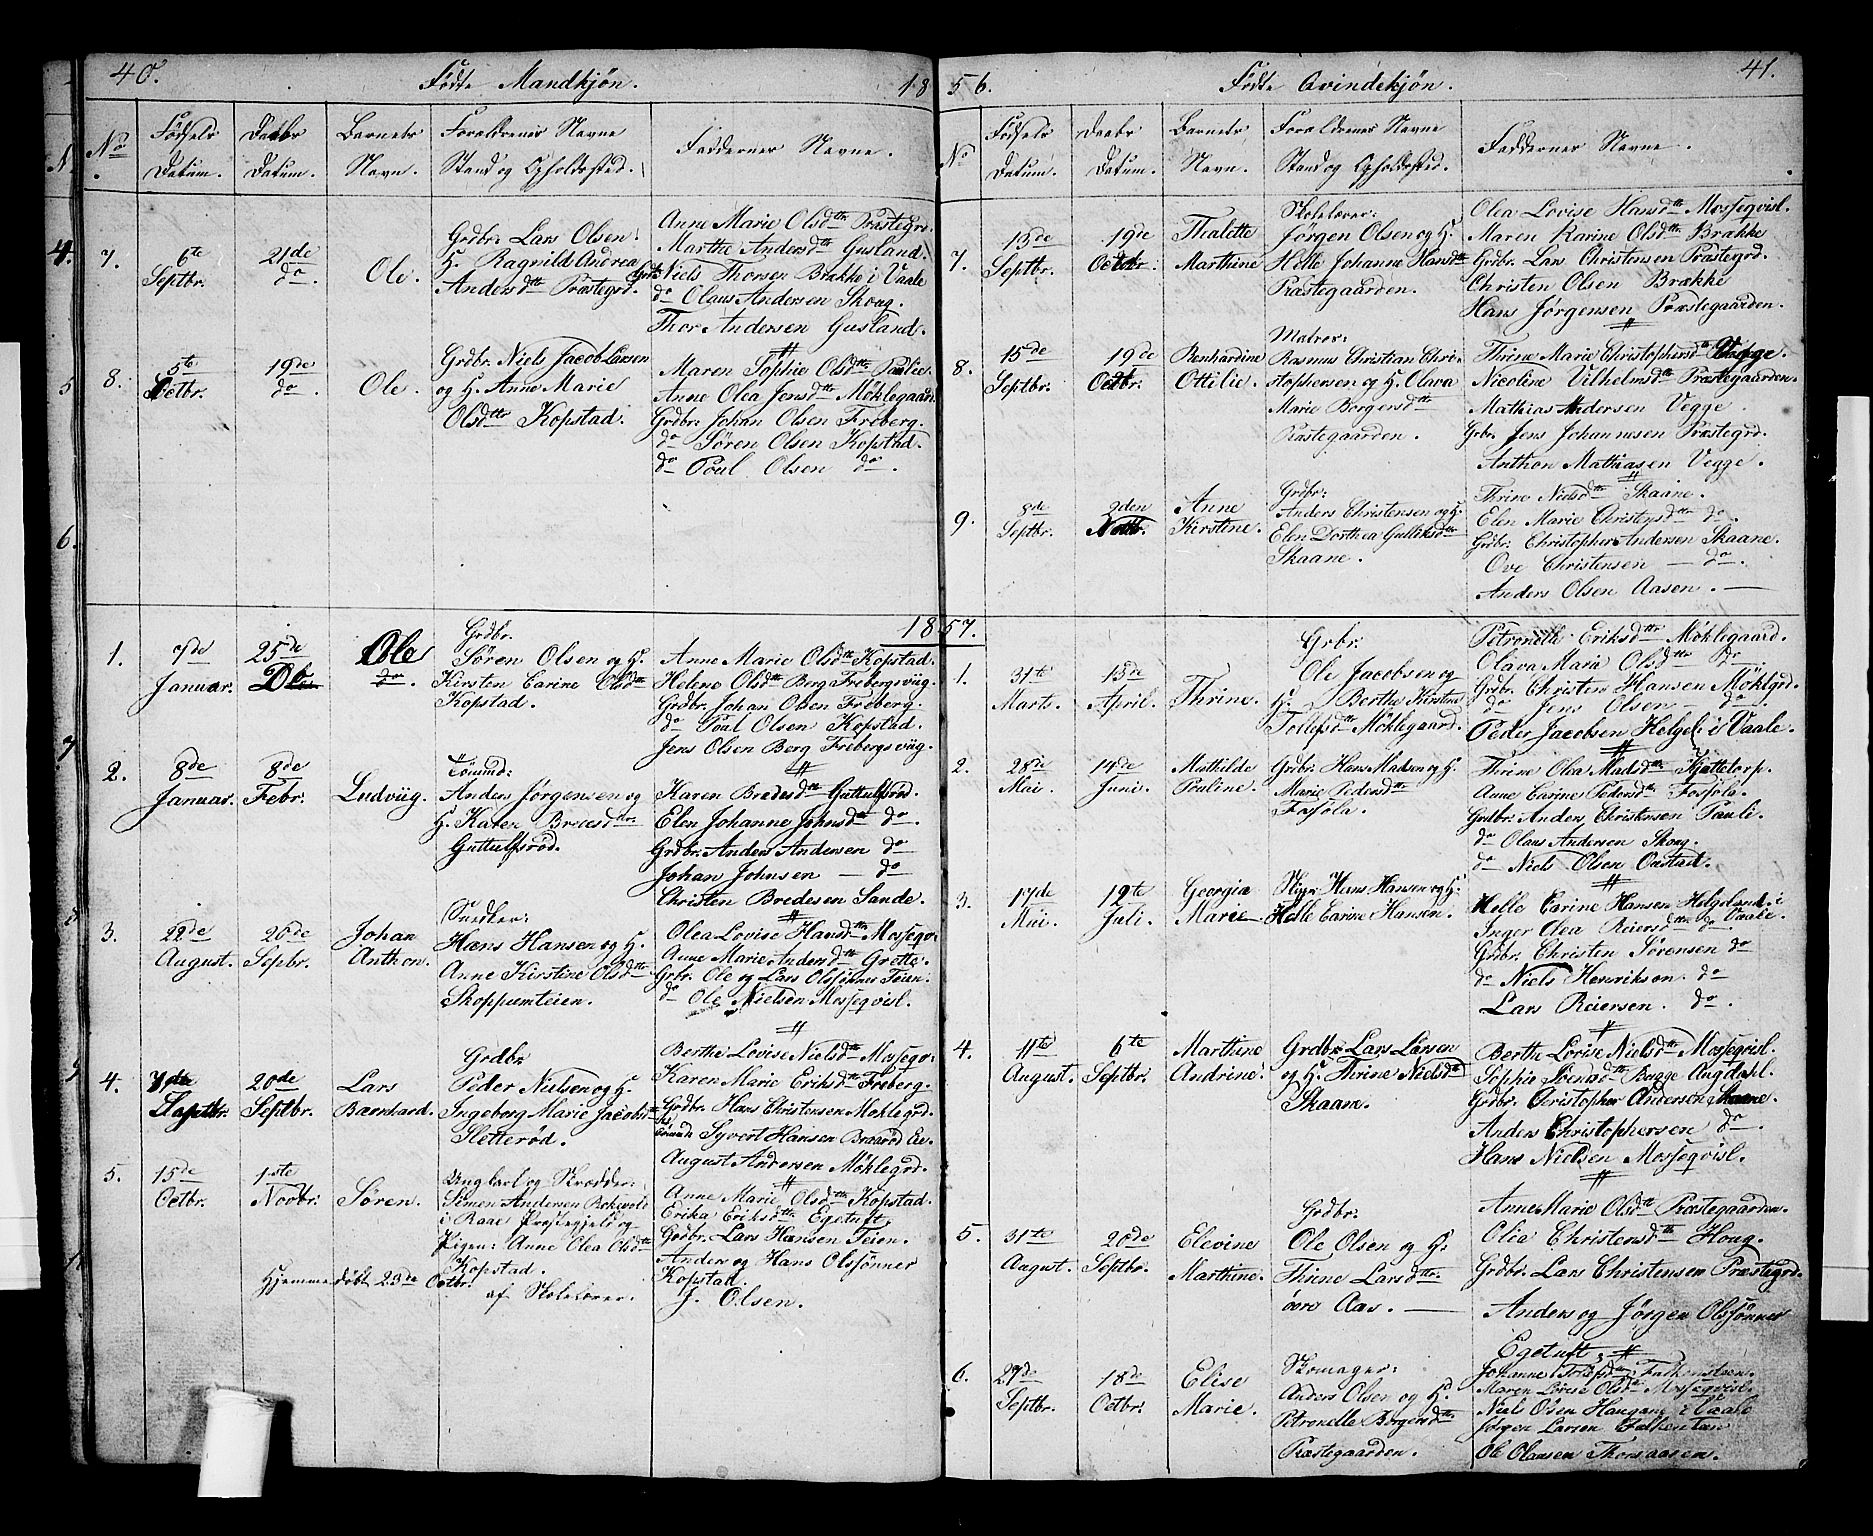 40.
Fødte Mandkjøn.
18
No.
Fødsels Datum.
Daabs Datum.
Barnets Navn.
Forældrenes Navne Stand og Opholdssted.
Faddernes Navne.
7.
6te Septbr.
21de do.
Ole.
Grdbr. Lars Olsen.
H. Ragnild Andrea
Andersdtr Præstegrd.
Anne Marie Olsdtr Præstegrd.
Marthe Andersdtr Gusland.
Grdb. Niels Thorsen Brække i Vaale
do Olaus Andersen Skoug.
Thor Andersen Gusland.
8.
5te Octbr.
19de do.
Ole.
Grdbr. Niels Jacob Larsen
og H. Anne Marie
Olsdtr Kopstad.
Maren Sophie Olsdtr Paulie.
Anne Olea Jensdtr Möklegaard
Grdbr: Johan Olsen Freberg.
do Sören Olsen Kopstad.
do Poul Olsen do.
1857.
1.
7de Januar.
25de Do
Ole do.
Grdbr.
Sören Olsen og H.
Kirsten Carine Olsdtr
Kopstad.
Anne Marie Olsdtr Kopstad.
Helene Olsdtr Berg Frebergsvüg.
Grdbr. Johan Olsen Freberg.
do Poul Olsen Kopstad.
Jens Olsen Berg Frebergsvüg.
2.
8de Januar.
8de Febr.
Ludvüg.
Tömmd:
Anders Jørgensen og
H. Karen Bredesdtr
Guttulfsröd.
Karen Bredesdtr Guttulfsröd
Elen Johanne Johnsdtr do.
Grdbr. Anders Andersen do
Johan Johnsen — do
Christen Bredesen Sande.
3.
22de August.
26de Sepbr.
Johan Anthon.
Snedker:
Hans Hansen og H.
Anne Kirstine Olsdtr
Skoppumteien.
Olea Lovise Hansdtr Mosseqv.
Anne Marie Andersdtr Grette.
Grbr. Ole og Lars Olssønner Teien.
do Ole Nielsen Mosseqvisl.
4.
Septbr.
20de Septbr.
Lars Barnhard.
Grdbr
Peder Nielsen og H.
Ingeborg Marie Jacobsdtr
Sletterød.
Berthe Lovise Nielsdtr Mosseqv.
Karen Marie Eriksdtr Freberg.
Grdbr. Hans Christensen Moklegrd.
Syvert Hansen Braarød Eie.
August Andersen Möklegrd.
5.
15de Octbr.
1ste Novbr:
Søren.
Ungkarl og Skrædder:
Simen Andersen Bokevold
i Raae Præstegjeld og
Pigen: Anne Olea Olsdtr
Kopstad.
Hjemmedøbt 23de Octbr. af Skolelærer.
Anne Marie Olsdtr Kopstad.
Erika Eriksdtr Egetuft.
Grdbr. Lars Hansen Teien.
Anders og Hans Olssönner
Kopstad.
J. Olsen.
56.
Fødte Qvindekjøn.
41.
No
Fødsels Datum.
Daabs Datum.
Barnets Navn.
Forældrenes Navne Stand og Opholdssted.
Faddernes Navne.
7.
13de Septbr.
19de Octbr.
Thalette Marthine
Skolelærer:
Jörgen Olsen og H.
Helle Johanne Hansdtr
Præstegaarden.
Olea Lovise Hansdtr Mosseqvisl.
Maren Karine Olsdtr Brække
Grdbr. Lars Christensen Præstegrd.
Christen Olsen Brække
Hans Jørgensen Præstegaarden.
8.
15de Septbr.
19de Octbr.
Benhardine Ottilie.
Matros:
Rasmus Christian Chri-
stophersen og H. Olava
Marie Borgersdtr
Præstegaarden.
Thrine Marie Christophersd Vegge.
Nicoline Vilhelmsdtr Præstegaarden.
Mathias Andersen Vegge.
Grbr. Jens Johannesen Præstegrd.
Anthon Mathiasen Vegge.
9.
8de Septbr.
2den Novbr.
Anne Kirstine.
Grdbr:
Anders Christensen og H.
Elen Dorthea Gulliksdtr
Skaane.
Thrine Nielsdtr Skaane.
Elen Marie Christensdtr do.
Grdbr. Christopher Andersen Skaane.
Ove Christensen — do.
Anders Olsen Aasen. —
1.
31te Marts.
13de April.
Thrine.
Grbr.
Ole Jacobsen og
H. Berthe Kirstine
Tollefsdtr Möklegaard.
Petronelle Eriksdtr Möklegaard.
Olava Maria Olsdtr do.
Grdbr. Christen Hansen Möklgrd.
do Jens Olsen do.
Peder Jacobsen Helgel. i Vaale.
2.
28de Mai.
14de Juni.
Mathilde Pauline.
Grdbr. Hans Madsen og H.
Marie Pedersdtr
Fossola.
Thrine Olea Madsdtr Hjattetorp.
Anne Carine Pedersdtr Fossola.
Grdbr. Anders Christensen Pauli.
do Olaus Andersen Skoug.
do Niels Olsen Qvistad.
3.
17de Mai.
12te Juli.
Georgia Marie
Skppr. Hans Hansen og H.
Helle Carine Hansen.
Helle Carine Hansen Helgeland i Vaale.
Inger Olea Reiersdtr do
Grdbr. Christen Sörensen do
do Niels Henriksen. do
Lars Reiersen. do.
4.
11te August.
6te Septbr.
Marthine Andrine.
Grdbr. Lars Larsen
og H. Thrine Nielsdtr
Skaane.
Berthe Lovise Nielsdtr Mosseqvisl.
Sophie Svensdtr Bugge Augdahl.
Grdbr. Christopher Andersen Skaane.
Anders Christophersen do
Hans Nielsen Mosseqvisl.
5.
31te August.
20de Septbr.
Elevine Marthine.
Grdbr:
Ole Olsen og H.
Thrine Larsdtr.
övre Aas. —
Anne Marie Olsdtr Præstegaarden.
Olia Christensdtr Houg.
Grdbr. Lars Christensen Præstegrd.
Anders og Jørgen Olssønner
Egetuft.
6.
27de Septbr.
18de Octbr.
Elise Marie.
Skomager:
Anders Olsen og H.
Petronelle Borgersdtr
Præstegaarden.
Johanne Tolefsdtr Falkensteen.
Maren Lovise Olsdtr Mosseqvisl.
Niels Olsen Haugane i Vaale
Jørgen Larsen Falkensten
Ole Olausen Thorsaasen.